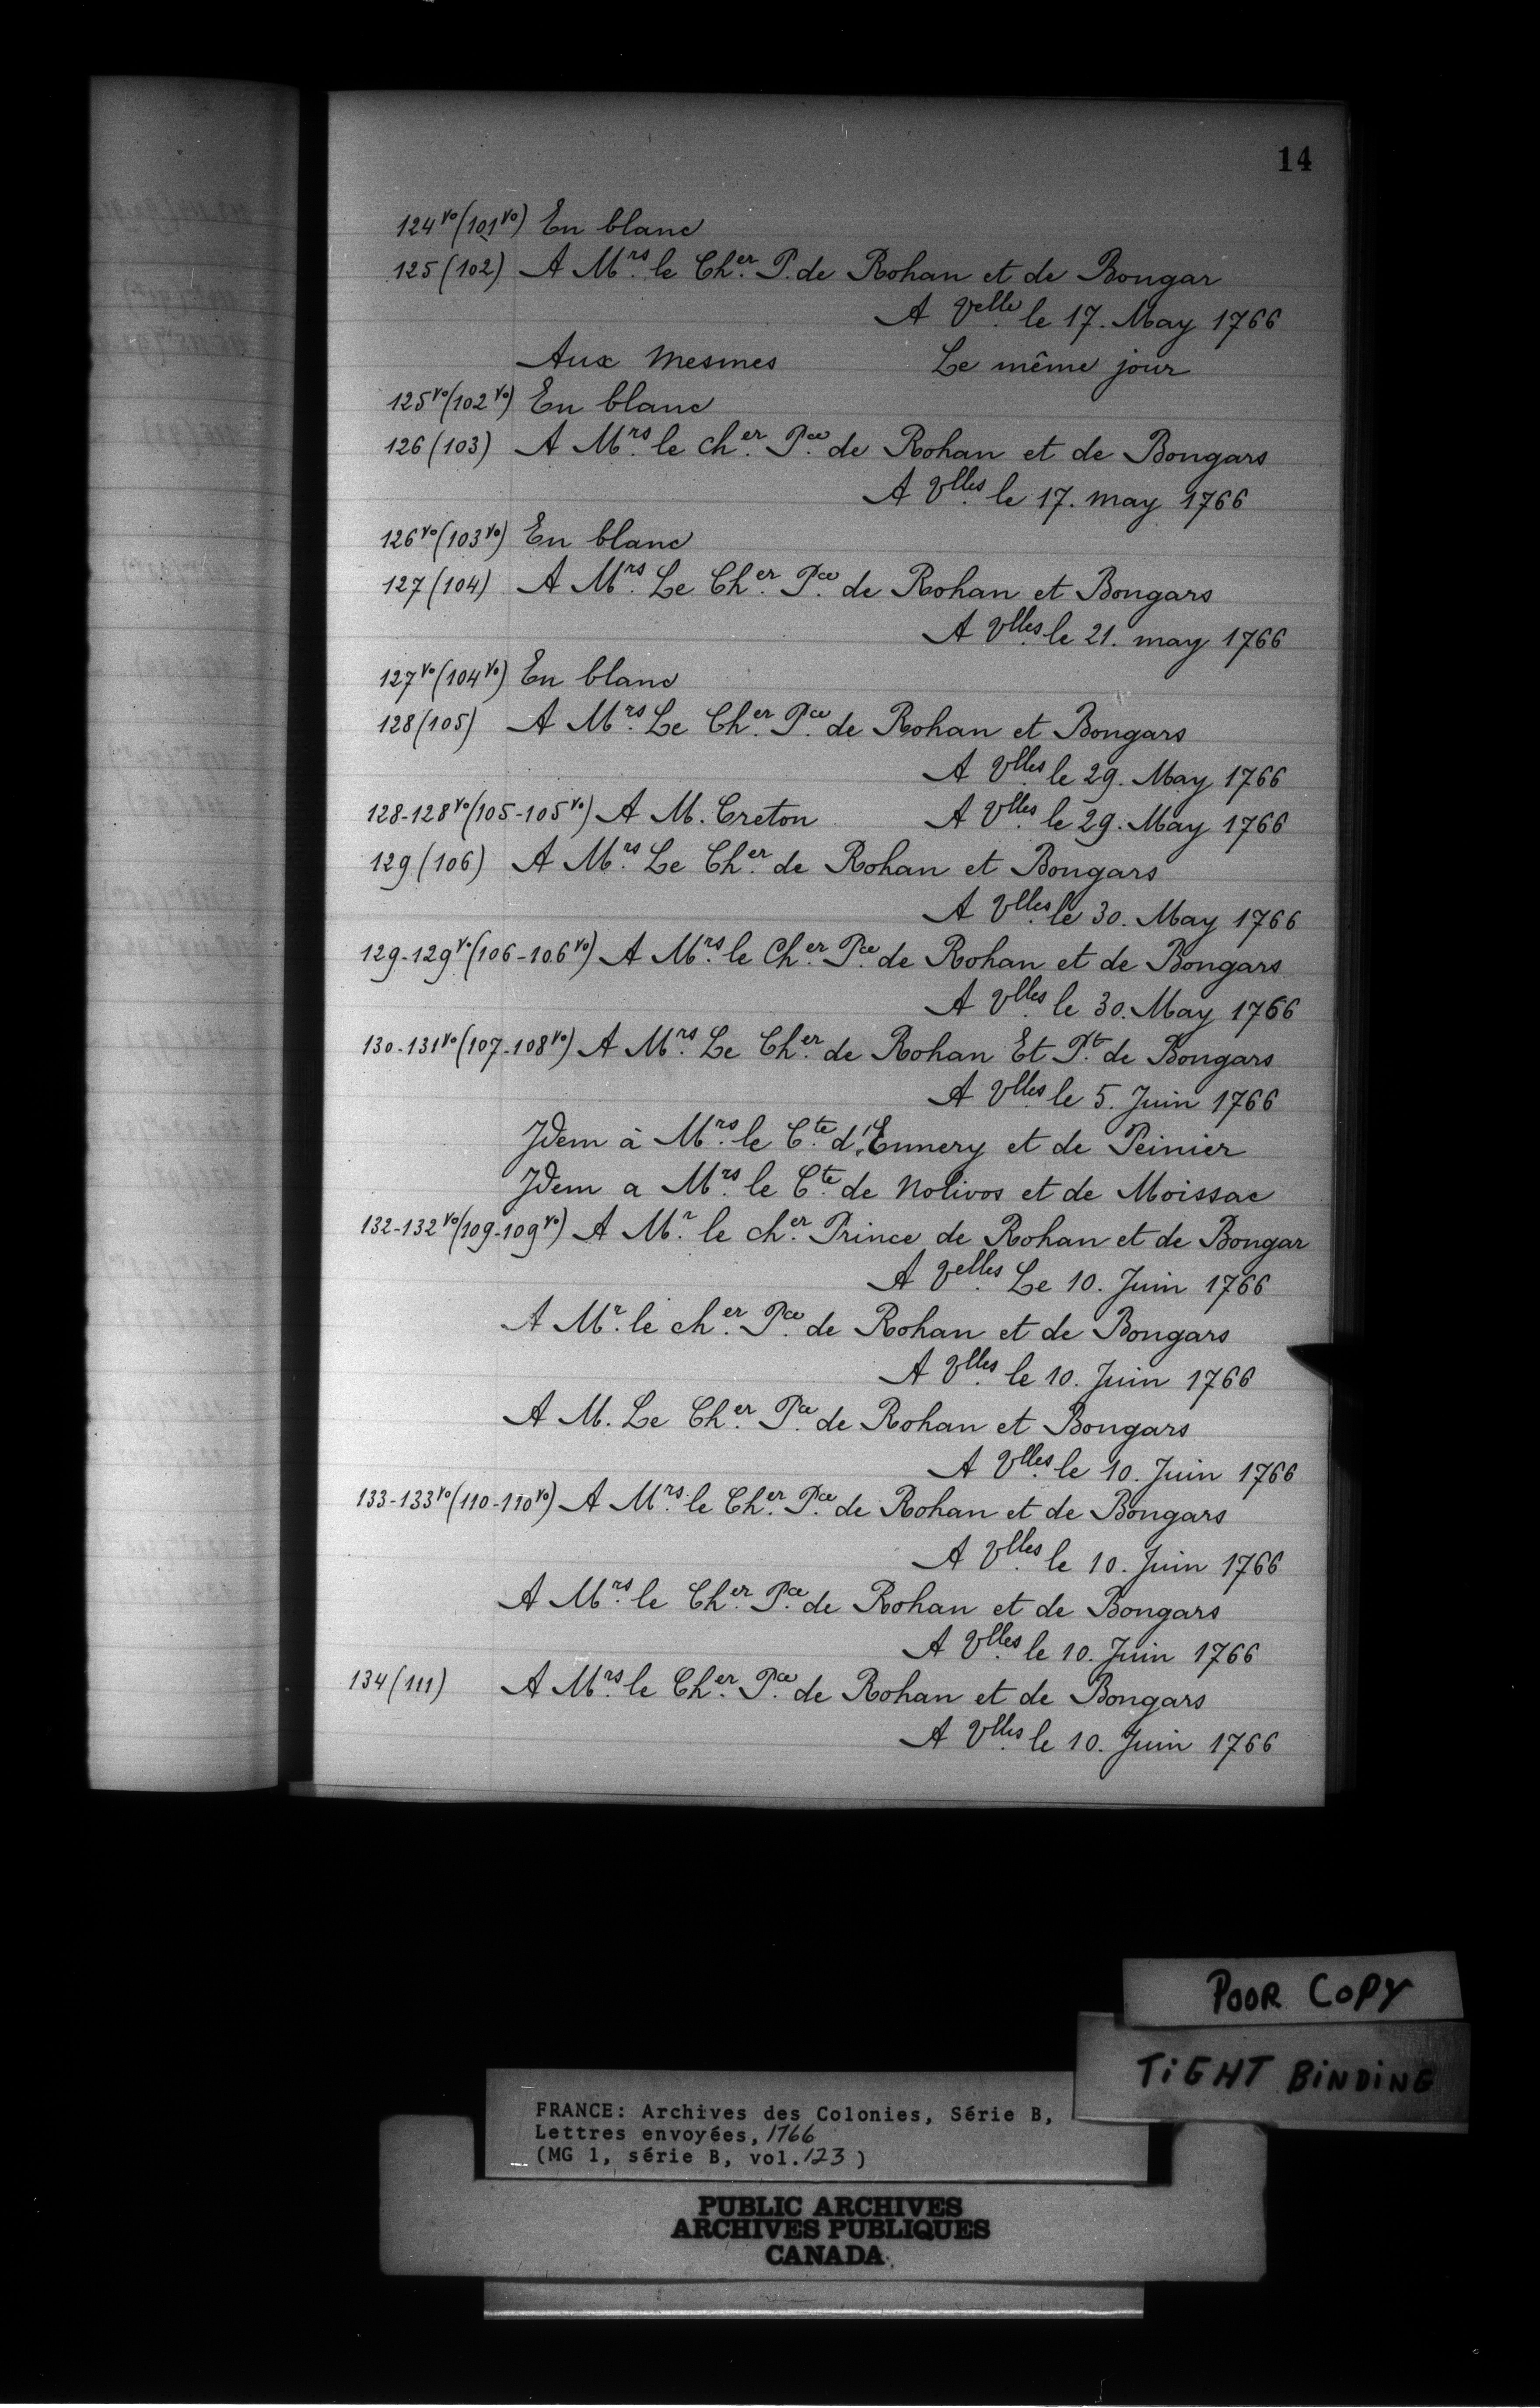 14
124vo (101vo) En blanc
125 (102) A Mrs. le Cher. P. de Rohan et de Bongar
A Velle. le 17. May 1766
Aux Mesmes Le même jour
125vo (102vo) En blanc
126 (103) A Mrs. le cher. Pce. de Rohan et de Bongars
A Vlles. le 17. may 1766
126vo (103vo) En blanc
127 (104) A Mrs. Le Cher. Pce. de Rohan et Bongars
A Vlles. le 21. may 1766
127vo (104vo) En blanc
128 (105) A Mrs. Le Cher. Pce. de Rohan et Bongars
A Vlles. le 29. May 1766
128-128vo (105-105vo) A M. Creton A Vlles. le 29. May 1766
129 (106) A Mrs. Le Cher. de Rohan et Bongars
A Vlles. le 30. May 1766
129-129vo (106-106vo) A Mrs. le Cher. Pce. de Rohan et de Bongars
A Vlles. le 30. May 1766
130-131vo (107-108vo) A Mrs. Le Cher. de Rohan Et Pt. de Bongars
A Vlles. le 5. Juin 1766
Idem à Mrs. le Cte. d'Ennery et de Peinier
Idem a Mrs. le Cte. de Nolivos et de Moissac
132-132vo (109-109vo) A Mr. le cher. Prince de Rohan et de Bongar
A Velles. Le 10. Juin 1766
A Mr. le cher. Pce. de Rohan et de Bongars
A Vlles. le 10. Juin 1766
A M. Le Cher. Pce. de Rohan et Bongars
A Vlles. le 10. Juin 1766
133-133vo (110-110vo) A Mrs. le Cher. Pce. de Rohan et de Bongars
A Vlles. le 10. Juin 1766
A Mrs. le Cher. Pce. de Rohan et de Bongars
A Vlles. le 10. Juin 1766
134 (111) A Mrs. le Cher. Pce. de Rohan et de Bongars
A Vlles. le 10. Juin 1766
POOR COPY
TIGHT BINDING
FRANCE: Archives des Colonies, Série B,
Lettres envoyées, 1766
(MG 1, série B, vol. 123)
PUBLIC ARCHIVES
ARCHIVES PUBLIQUES
CANADA